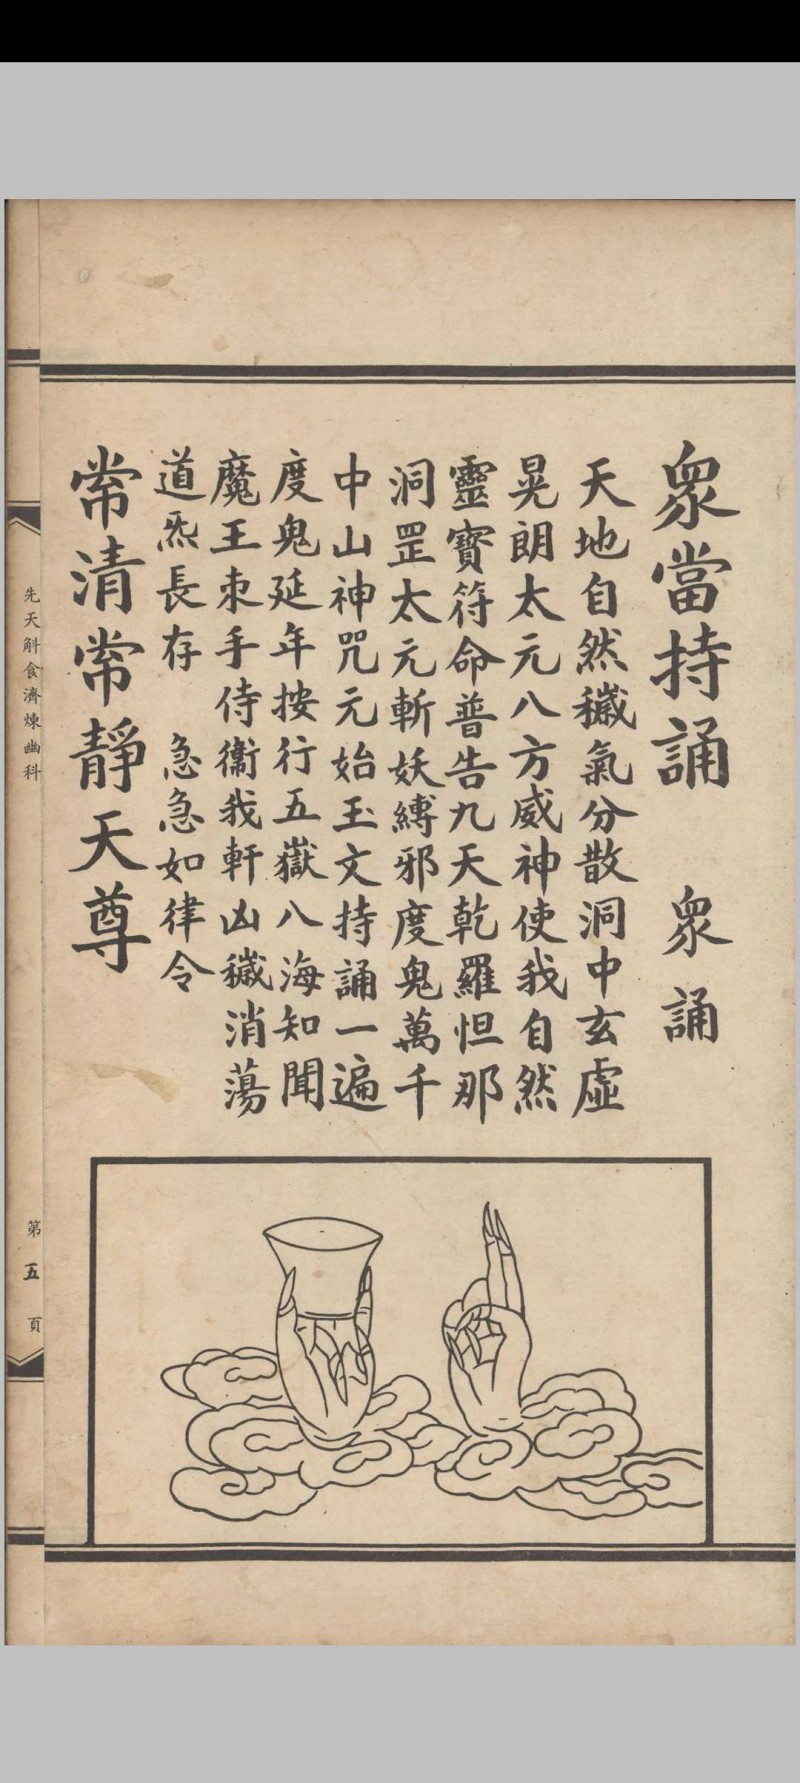 眾當持誦　眾誦
天地自然穢氣分散洞中玄虛
晃朗太元八方威神使我自然
靈寶符命普告九天乾羅怛那
洞罡太元斬妖縛邪度鬼萬千
中山神咒元始玉文持誦一遍
度鬼延年按行五嶽八海知聞
魔王朿手侍衞我軒凶穢消蕩
道炁長存　急急如律令
常清常靜天尊
先天斛食濟煉幽科
第五頁